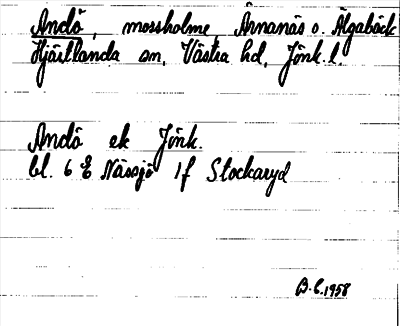 Andö, mossholme, Årnanäs o. Älgabäck
Hjärtlanda sn, Västra hd, Jönk. l.
Andö ek Jönk.
bl. 6 E Nässjö 1f Stockaryd
B.E. 1958